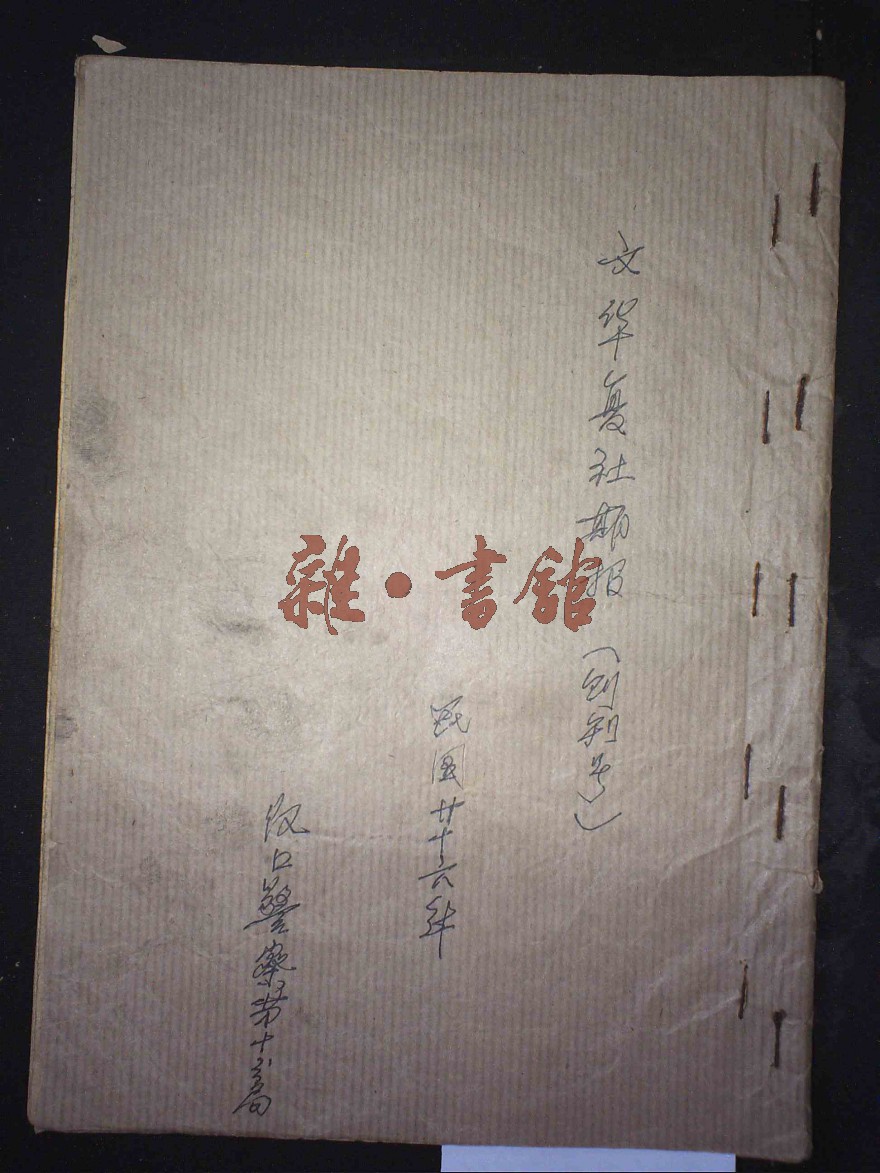 文华复社期报（创刊号）
民国廿十六年
汉口警察第十分局
雜·書館